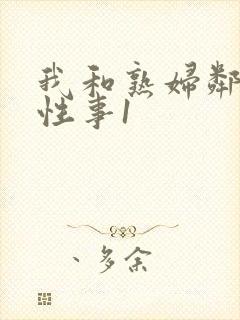 我和熟妇鄰
性事1
、多余